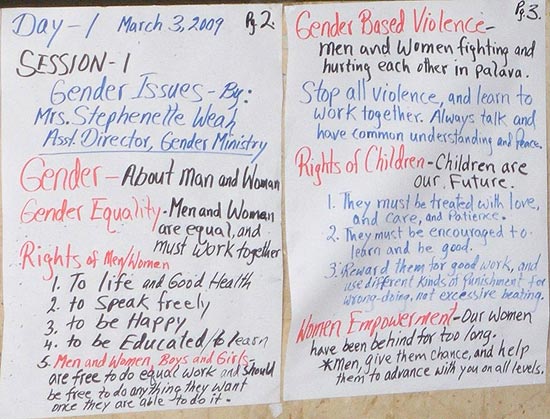 Day-1 March 3, 2009 Pg. 2.
SESSION-1
Gender Issues - By:
Mrs. Stephenette Weah
Asst. Director, Gender Ministry
Gender - About Man and Woman
Gender Equality - Men and Woman
are equal, and
must work together
Rights of Men/Women
1. To life and Good Health
2. to Speak freely
3. to be Happy
4. to be Educated/to learn
5. Men and Women, Boys and Girls-
are free to do equal work and should
be free to do anything they want
once they are able to do it.
Pg. 3.
Gender Based Violence-
men and women fighting and
hurting each other in palava.
Stop all violence, and learn to
work together. Always talk and
have common understanding and Peace.
Rights of Children - Children are
our Future.
1. They must be treated with love,
and care, and Patience.
2. They must be encouraged to-
learn and be good.
3. Reward them for good work, and
use different kinds of Punishment for
wrong-doing, not excessive beating.
Women Empowerment - Our Women
have been behind for too long.
*Men, give them chance, and help
them to advance with you on all levels.